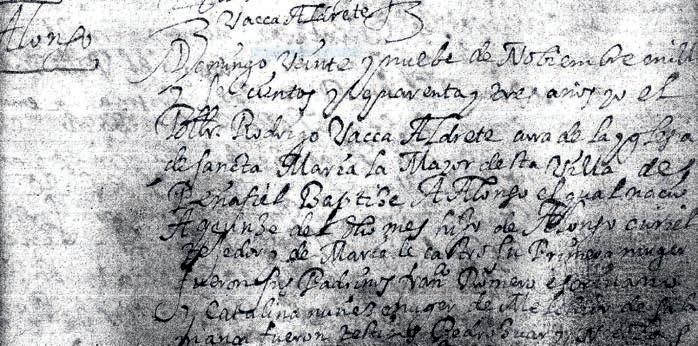 Vacca Aldrete
Alonso
Domingo Veinte y nuebe de Nobiembre mill
y seicientos y quarenta y tres años yo el
Rodrigo Vacca Aldrete cura de la yglesia
de sancta Maria la Mayor desta Villa de
Peñafiel Baptize A Alonso el qual nacio
A quinze del dho mes hijo de Alonso curiel
Rejedor y de Maria de castro su Primera muger
fueron sus Padrinos Romero escrivano
y Catalina nuñez muger de de sa
fueron testigos Pedro